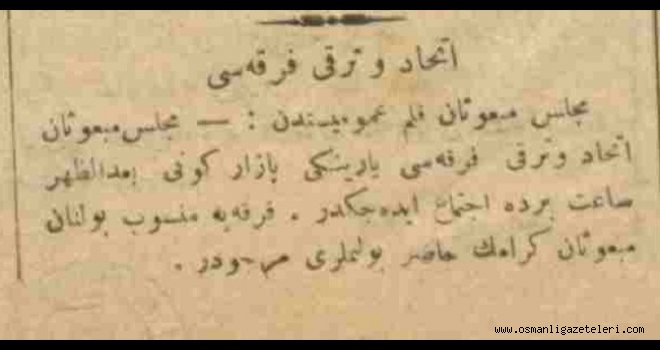 اتحاد و ترقی فرقه‌سی
مجلس مبعوثان قلم عمومیسندن : — مجلس مبعوثان
اتحاد وترقی فرقه‌سی یارینکی بازار کونی بعدالظهر
ساعت برده اجتماع ایده‌جکدر . فرقه‌یه منسوب بولنان
مبعوثان کرامك حاضر بولنملری مرجودر .
www.osmanligazeteleri.com